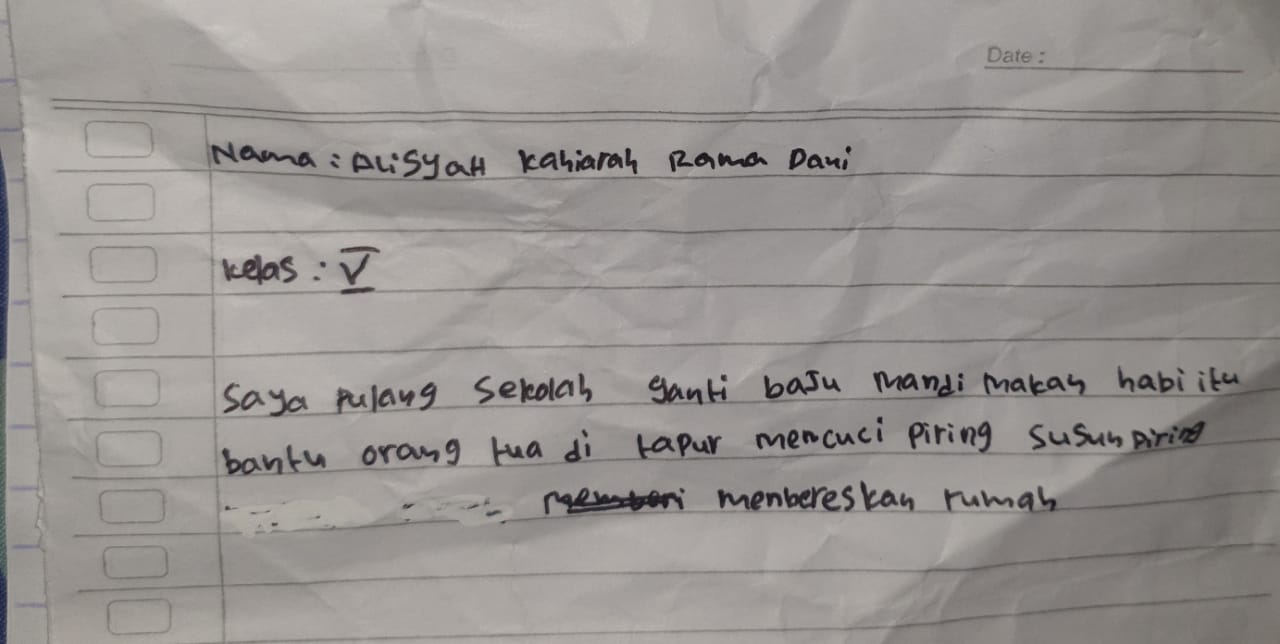 Date :
Nama : ALiSyaH Kahiarah Rama Dani
Kelas : V
Saya pulang Sekolah ganti baju mandi makan habi itu
bantu orang tua di tapur mencuci piring susun piring
menbereskan rumah